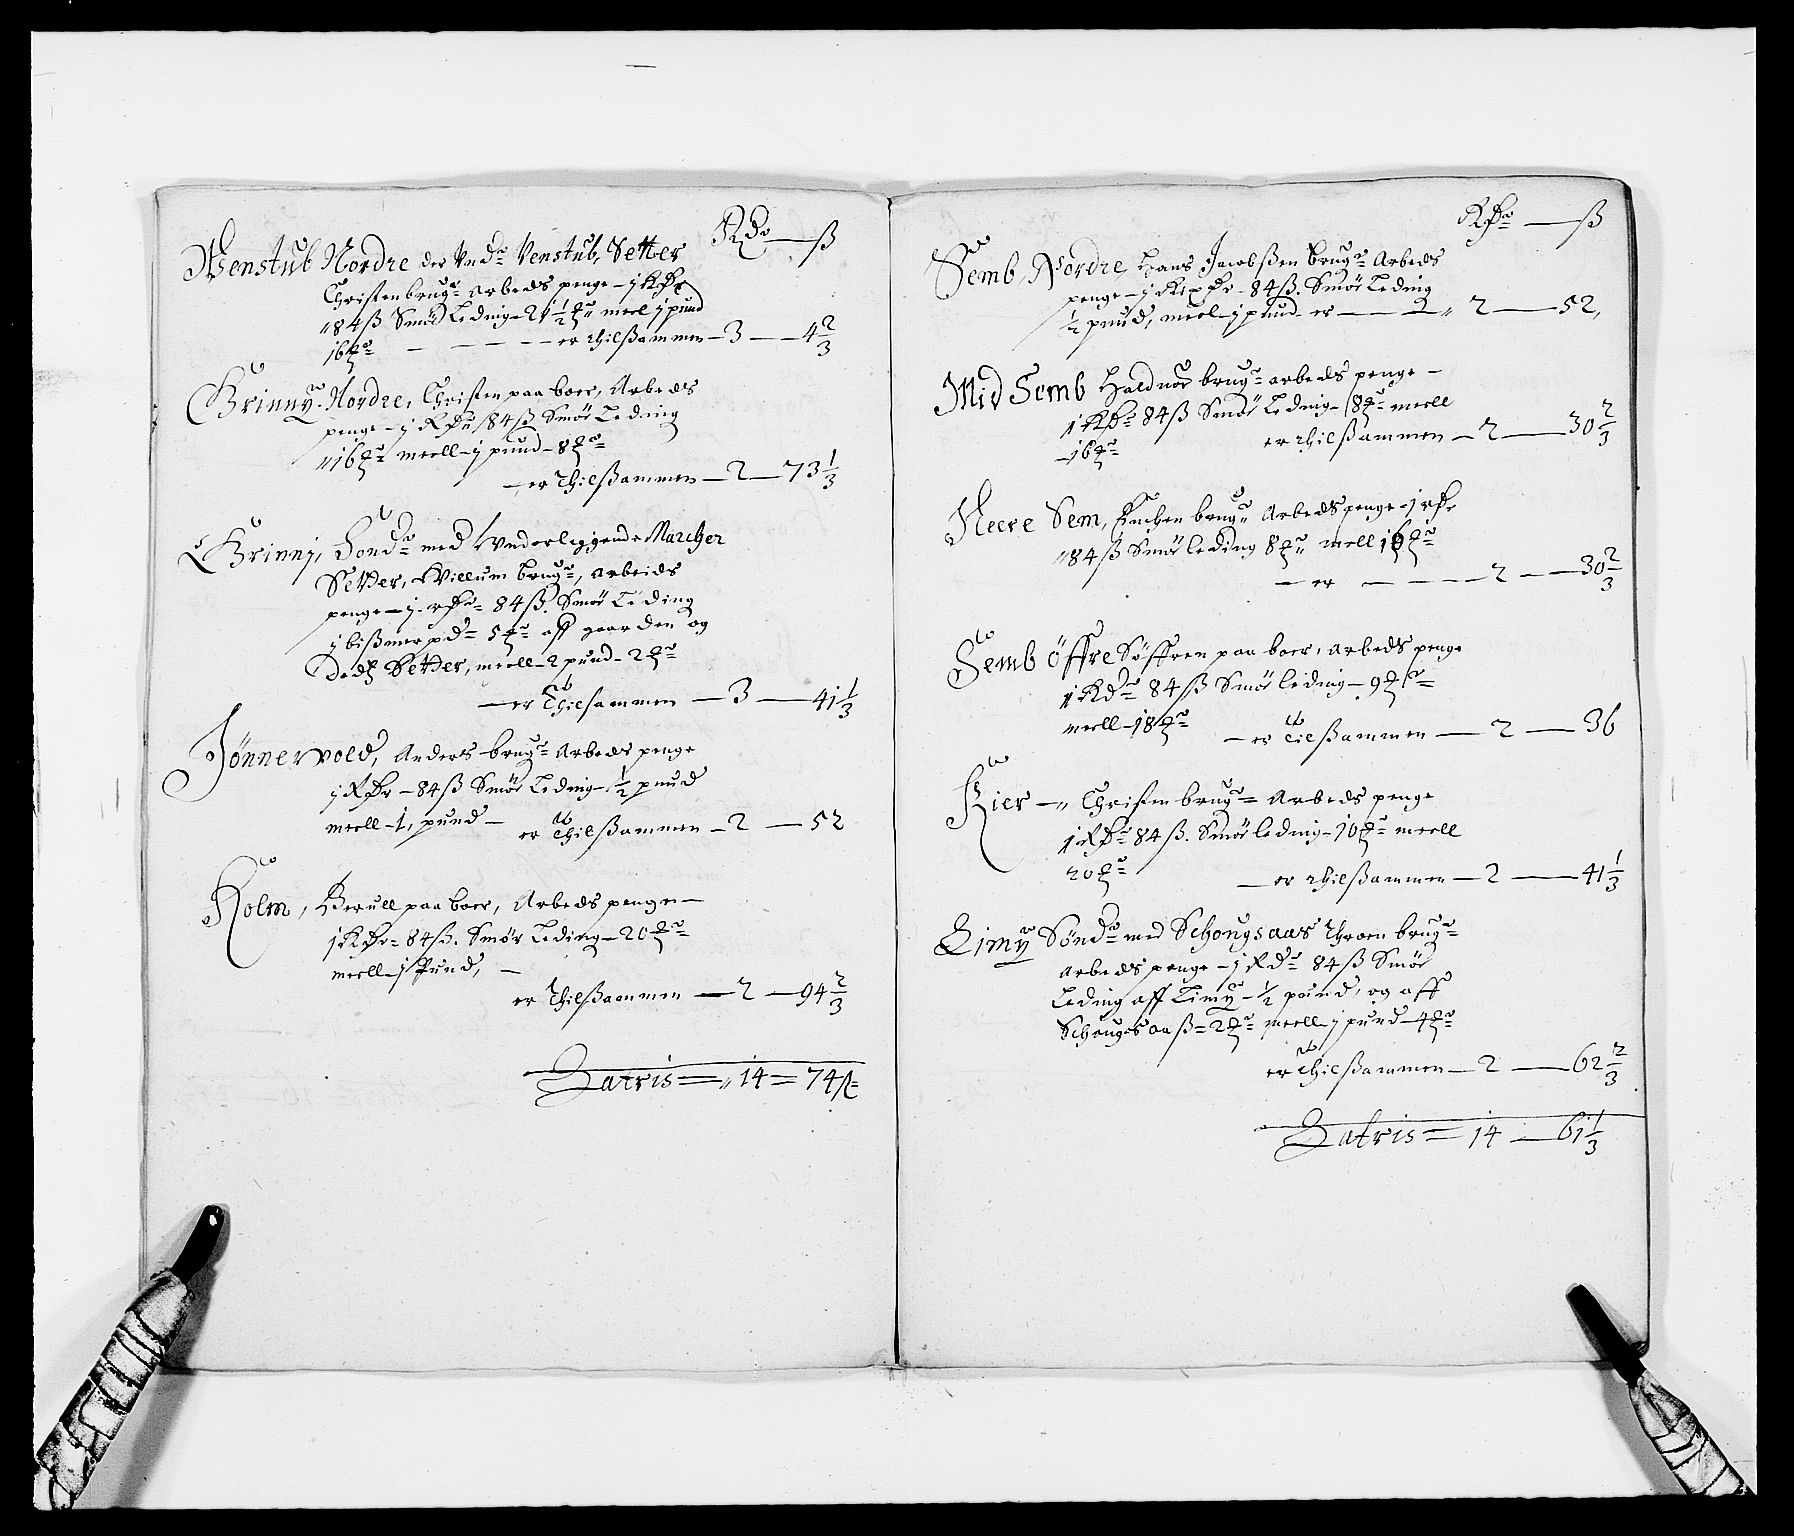 Rdr — ß
Wenstub Nordre der Und: Venstub, Setter
Christen brug: arbeds penge – j Rdr
84 ß Smør Leding – 21½ # meel j pund
16 # — er thilsammen – 3 — 4 2/3
Grinny Nordre, Christen paa boer, Arbeds
penge – j Rdr 84 ß Smør Leding
16 # meell – j pund – 8 #
— er thilßammen – 2 — 73 1/3
Grinnj, Sønd: med Underliggende Marcher
Setter, Willum brug:, arbeids
penge – j rdr 84 ß. Smør Leding
j bißmer pd: 5 # aff gaarden og
Setter, meell – 2 pund – 2 #
— er thilsammen – 3 — 41 1/3
Jønnervold, Anders brug: Arbeds penge
j Rdr – 84 ß Smør Leding – ½ pund
meell – 1, pund – er thilßammen – 2 — 52
Holm, Berull paa boer, Arbeds penge –
1 Rdr 84 ß. Smør Leding – 20 #
meell – j Pund, –
er thilßammen — 2 — 94 2/3
Latris = 14 = 74 ß
Rdr — ß
Semb Nordre, Hans Jacobßen brug: Arbeds
penge – j Rixdr – 84 ß. Smør Leding
½ pund, meel – j pund – er — 2 — 52,
Mid Semb Halduor brug: arbeds penge –
1 Rdr 84 ß Smør Leding – 8 # meell
– 16 # er thilßammen – 2 — 30 2/3
Neere Sem, brug: Arbeds penge – j rdr
84 ß Smør leding 8 # mell 16 #
— er — 2 — 30 2/3
Semb öffre Söffren paa boer, arbeds penge
1 Rdr 84 ß Smør leding – 9 #
meell – 18 # – er tilßammen — 2 — 36
Kier – Christen brug: Arbeds penge
1 Rdr 84 ß. Smør leding – 10 # meell
20 # — er thilßammen – 2 — 41 1/3
Limy Sønd: med Schougsaas Throen brug:
arbeds penge – j Rdr 84 ß Smør
Leding aff Limy – ½ pound, og aff
Schougsaaß = 2 # meell – j pund – 4 #
er thilßammen – 2 — 62 2/3
Latris = 14 — 61 1/3